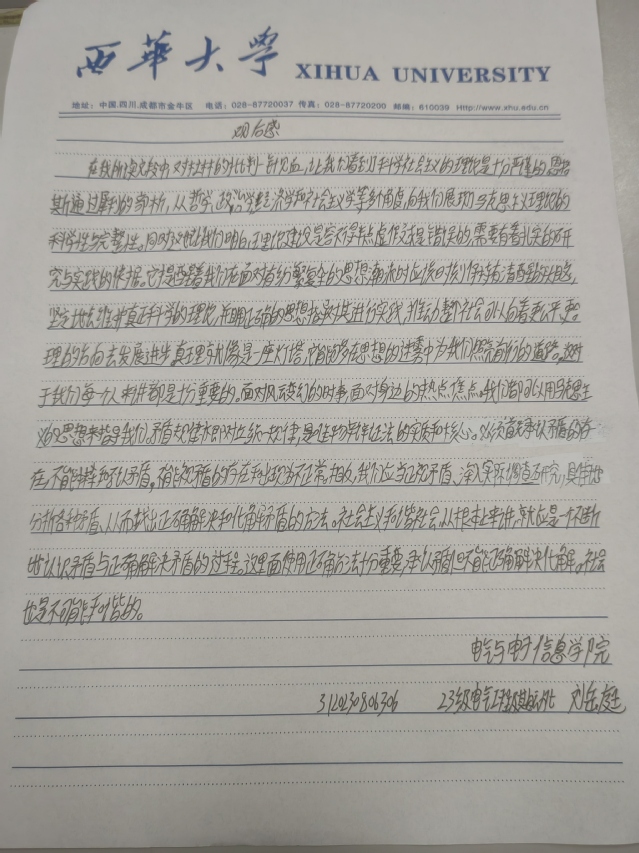 西华大学 XIHUA UNIVERSITY
地址：中国.四川.成都市金牛区 电话：028-87720037 传真：028-87720200 邮编：610039 Http://www.xhu.edu.cn
观后感
在我所读文段中，对杜林的批判一针见血，让我们看到科学社会主义的理论是十分严谨的恩格
斯通过犀利的剖析，从哲学、政治经济学和社会主义学等多角度，向我们展现了马克思主义理论的
科学性与完整性。同时又让我们明白，理论建设是容不得半点虚假还是错误的，需要有着扎实的研
究与实践的依据。它提醒着我们在面对着纷繁复杂的思想潮流时应该时刻保持清醒
坚定地去维护真正科学的理论，并用正确的思想指导其进行实践，推动整个社会可以向着更公平、更
理的方向去发展进步真理就像是一座灯塔，它能够在思想的迷雾中为我们照亮前行的道路。这对
于我们每个人来讲都是十分重要的。面对风云变幻的时事，面对身边的热点焦点。我们都可以用马克思主
义的思想来指导我们，矛盾规律亦即对立统一规律，是唯物辩证法的实质和核心。必须首先承认矛盾的存
在，不能掩盖和否认矛盾。不能视矛盾的存在和出现为不正常，相反，我们应当正视矛盾、深入实际调查研究，具体地
分析各种矛盾、从而找出正确解决和化解矛盾的方法。社会主义和谐社会，从根本上来讲，就应是一个不断
地认识矛盾与正确解决矛盾的过程。这里面使用正确方法十分重要，承认矛盾但不能正确解决化解。社会
也是不可能和谐的。
电气与电子信息学院
3120230806306 23级电气 刘岳庭